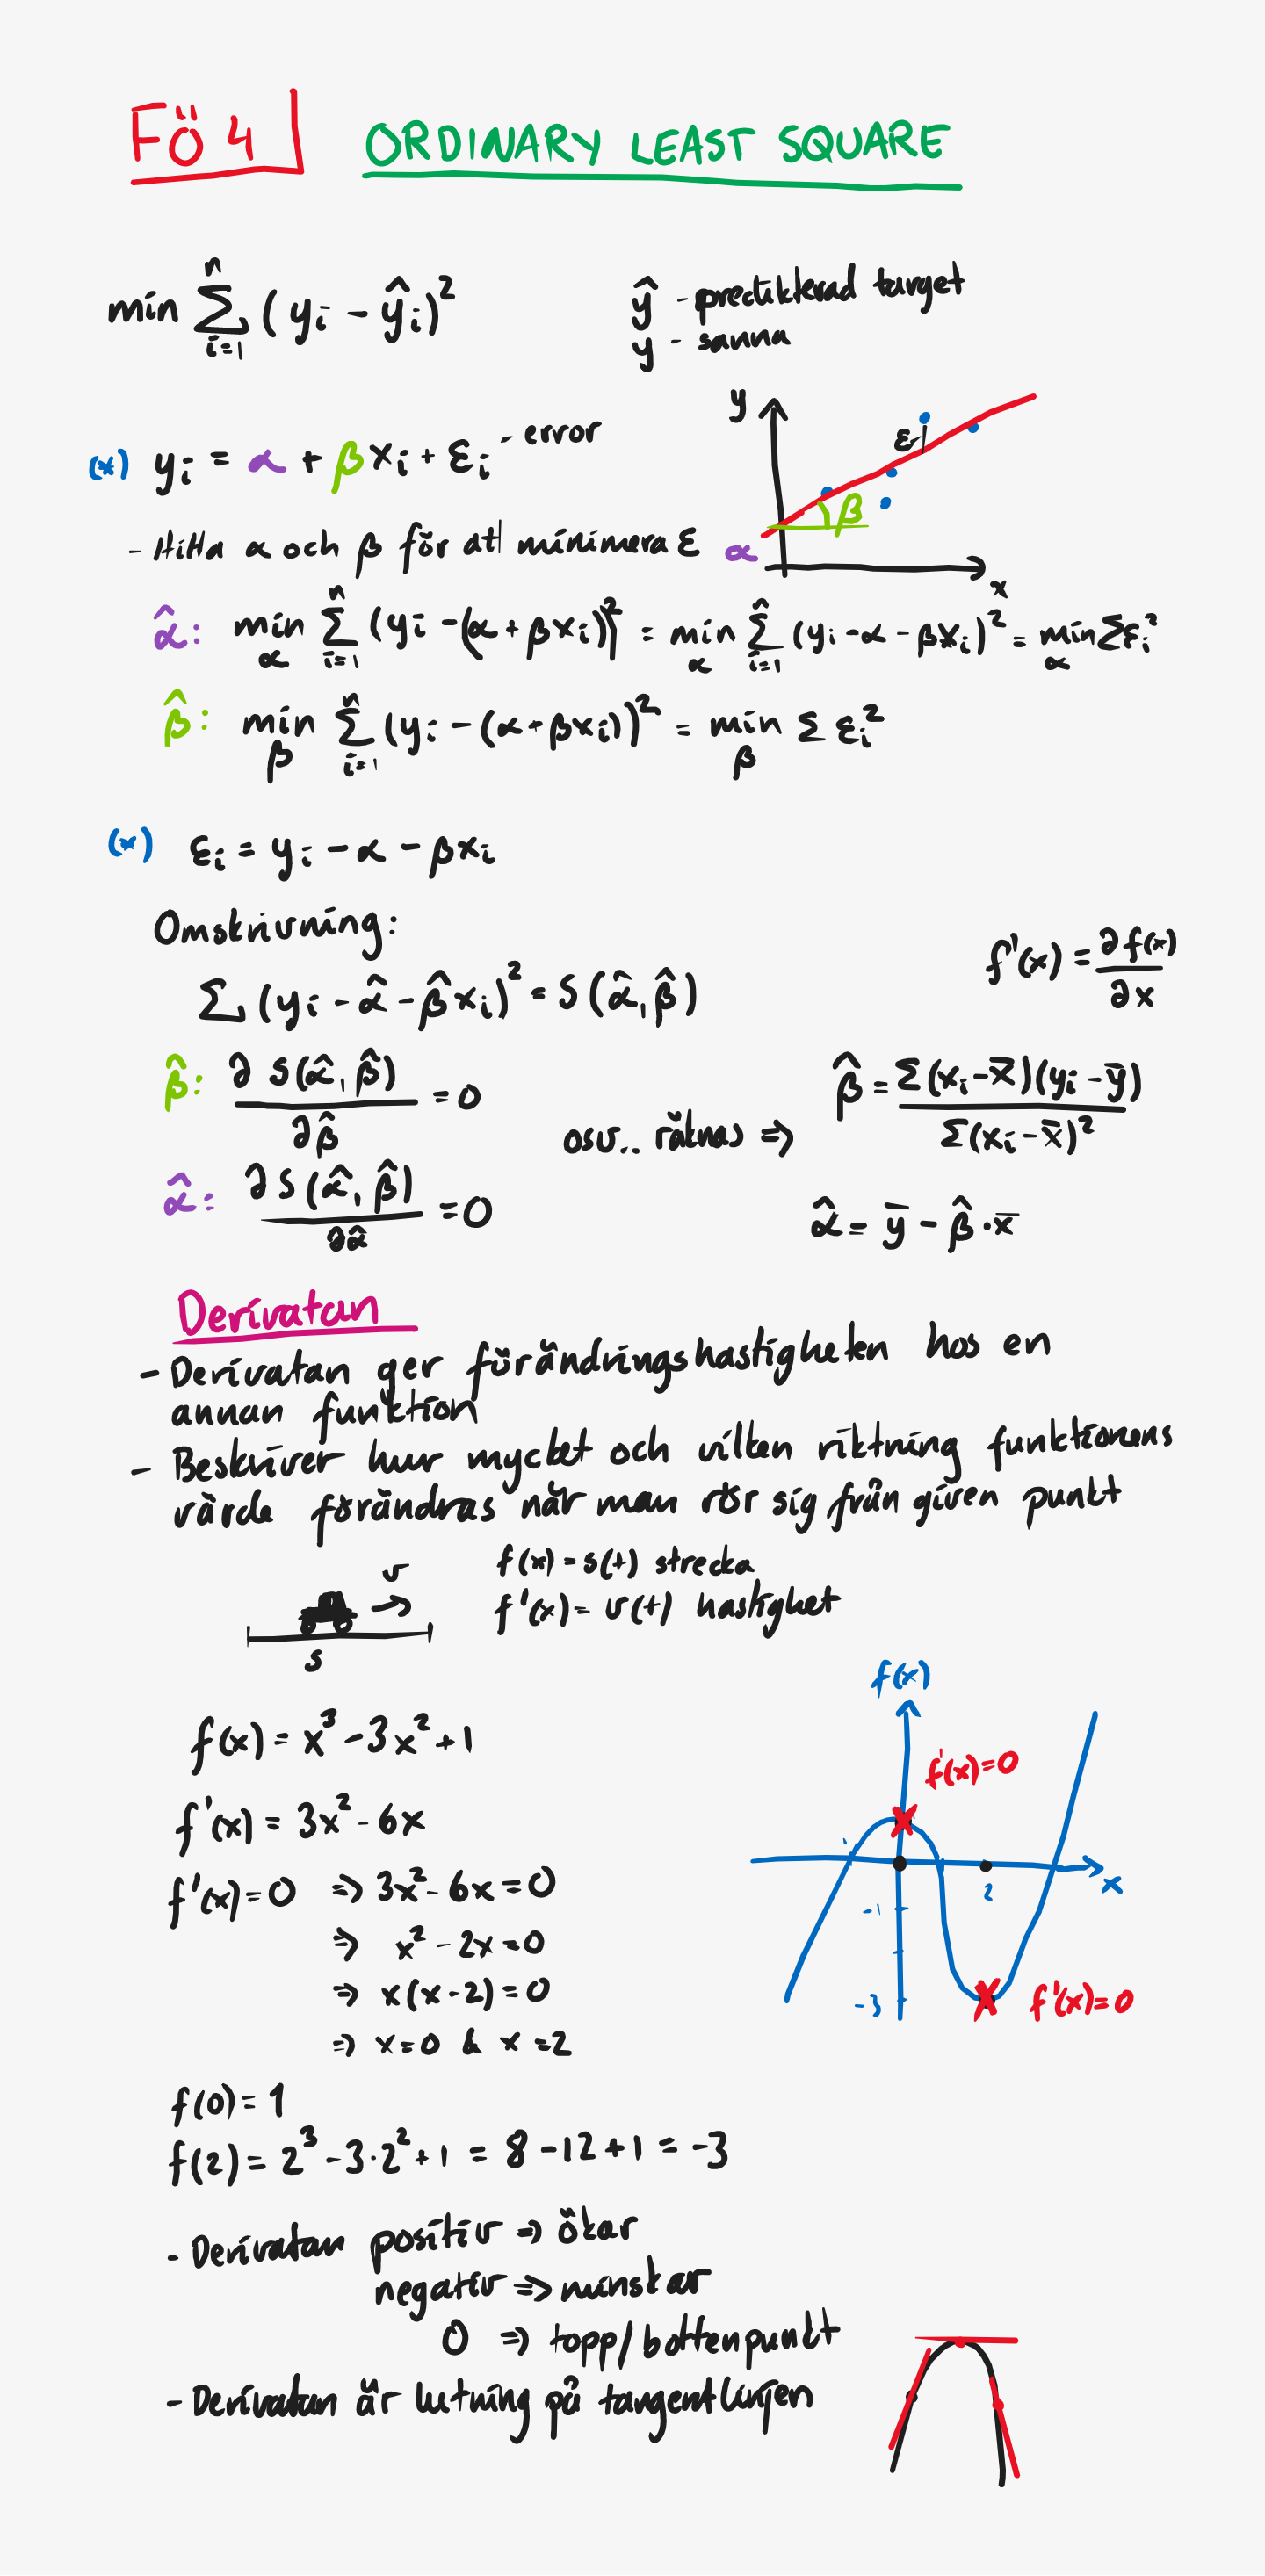 FÖ 4
ORDINARY LEAST SQUARE
min Σ_{i=1}^{n} (y_i - ŷ_i)²
ŷ - predikterad target
y - sanna
(*) y_i = α + βx_i + ε_i - error
y
ε
β
α
x
- Hitta α och β för att minimera ε
α̂: min_α Σ_{i=1}^{n} (y_i - (α + βx_i))² = min_α Σ_{i=1}^{n} (y_i - α - βx_i)² = min_α Σε_i²
β̂: min_β Σ_{i=1}^{n} (y_i - (α + βx_i))² = min_β Σ ε_i²
(*) ε_i = y_i - α - βx_i
Omskrivning:
Σ (y_i - α̂ - β̂x_i)² = S(α̂, β̂)
f'(x) = ∂f(x) / ∂x
β̂: ∂S(α̂, β̂) / ∂β̂ = 0
α̂: ∂S(α̂, β̂) / ∂α̂ = 0
osv.. räknas ⇒
β̂ = Σ(x_i - x̄)(y_i - ȳ) / Σ(x_i - x̄)²
α̂ = ȳ - β̂·x̄
Derivatan
- Derivatan ger förändringshastigheten hos en
annan funktion
- Beskriver hur mycket och vilken riktning funktionens
värde förändras när man rör sig från given punkt
v
s
f(x) = s(t) sträcka
f'(x) = v(t) hastighet
f(x) = x³ - 3x² + 1
f'(x) = 3x² - 6x
f'(x) = 0 ⇒ 3x² - 6x = 0
⇒ x² - 2x = 0
⇒ x(x - 2) = 0
⇒ x = 0 & x = 2
f(x)
f'(x) = 0
x
2
-1
-3
f'(x) = 0
f(0) = 1
f(2) = 2³ - 3·2² + 1 = 8 - 12 + 1 = -3
- Derivatan positiv ⇒ ökar
negativ ⇒ minskar
0 ⇒ topp/bottenpunkt
- Derivatan är lutning på tangentlinjen